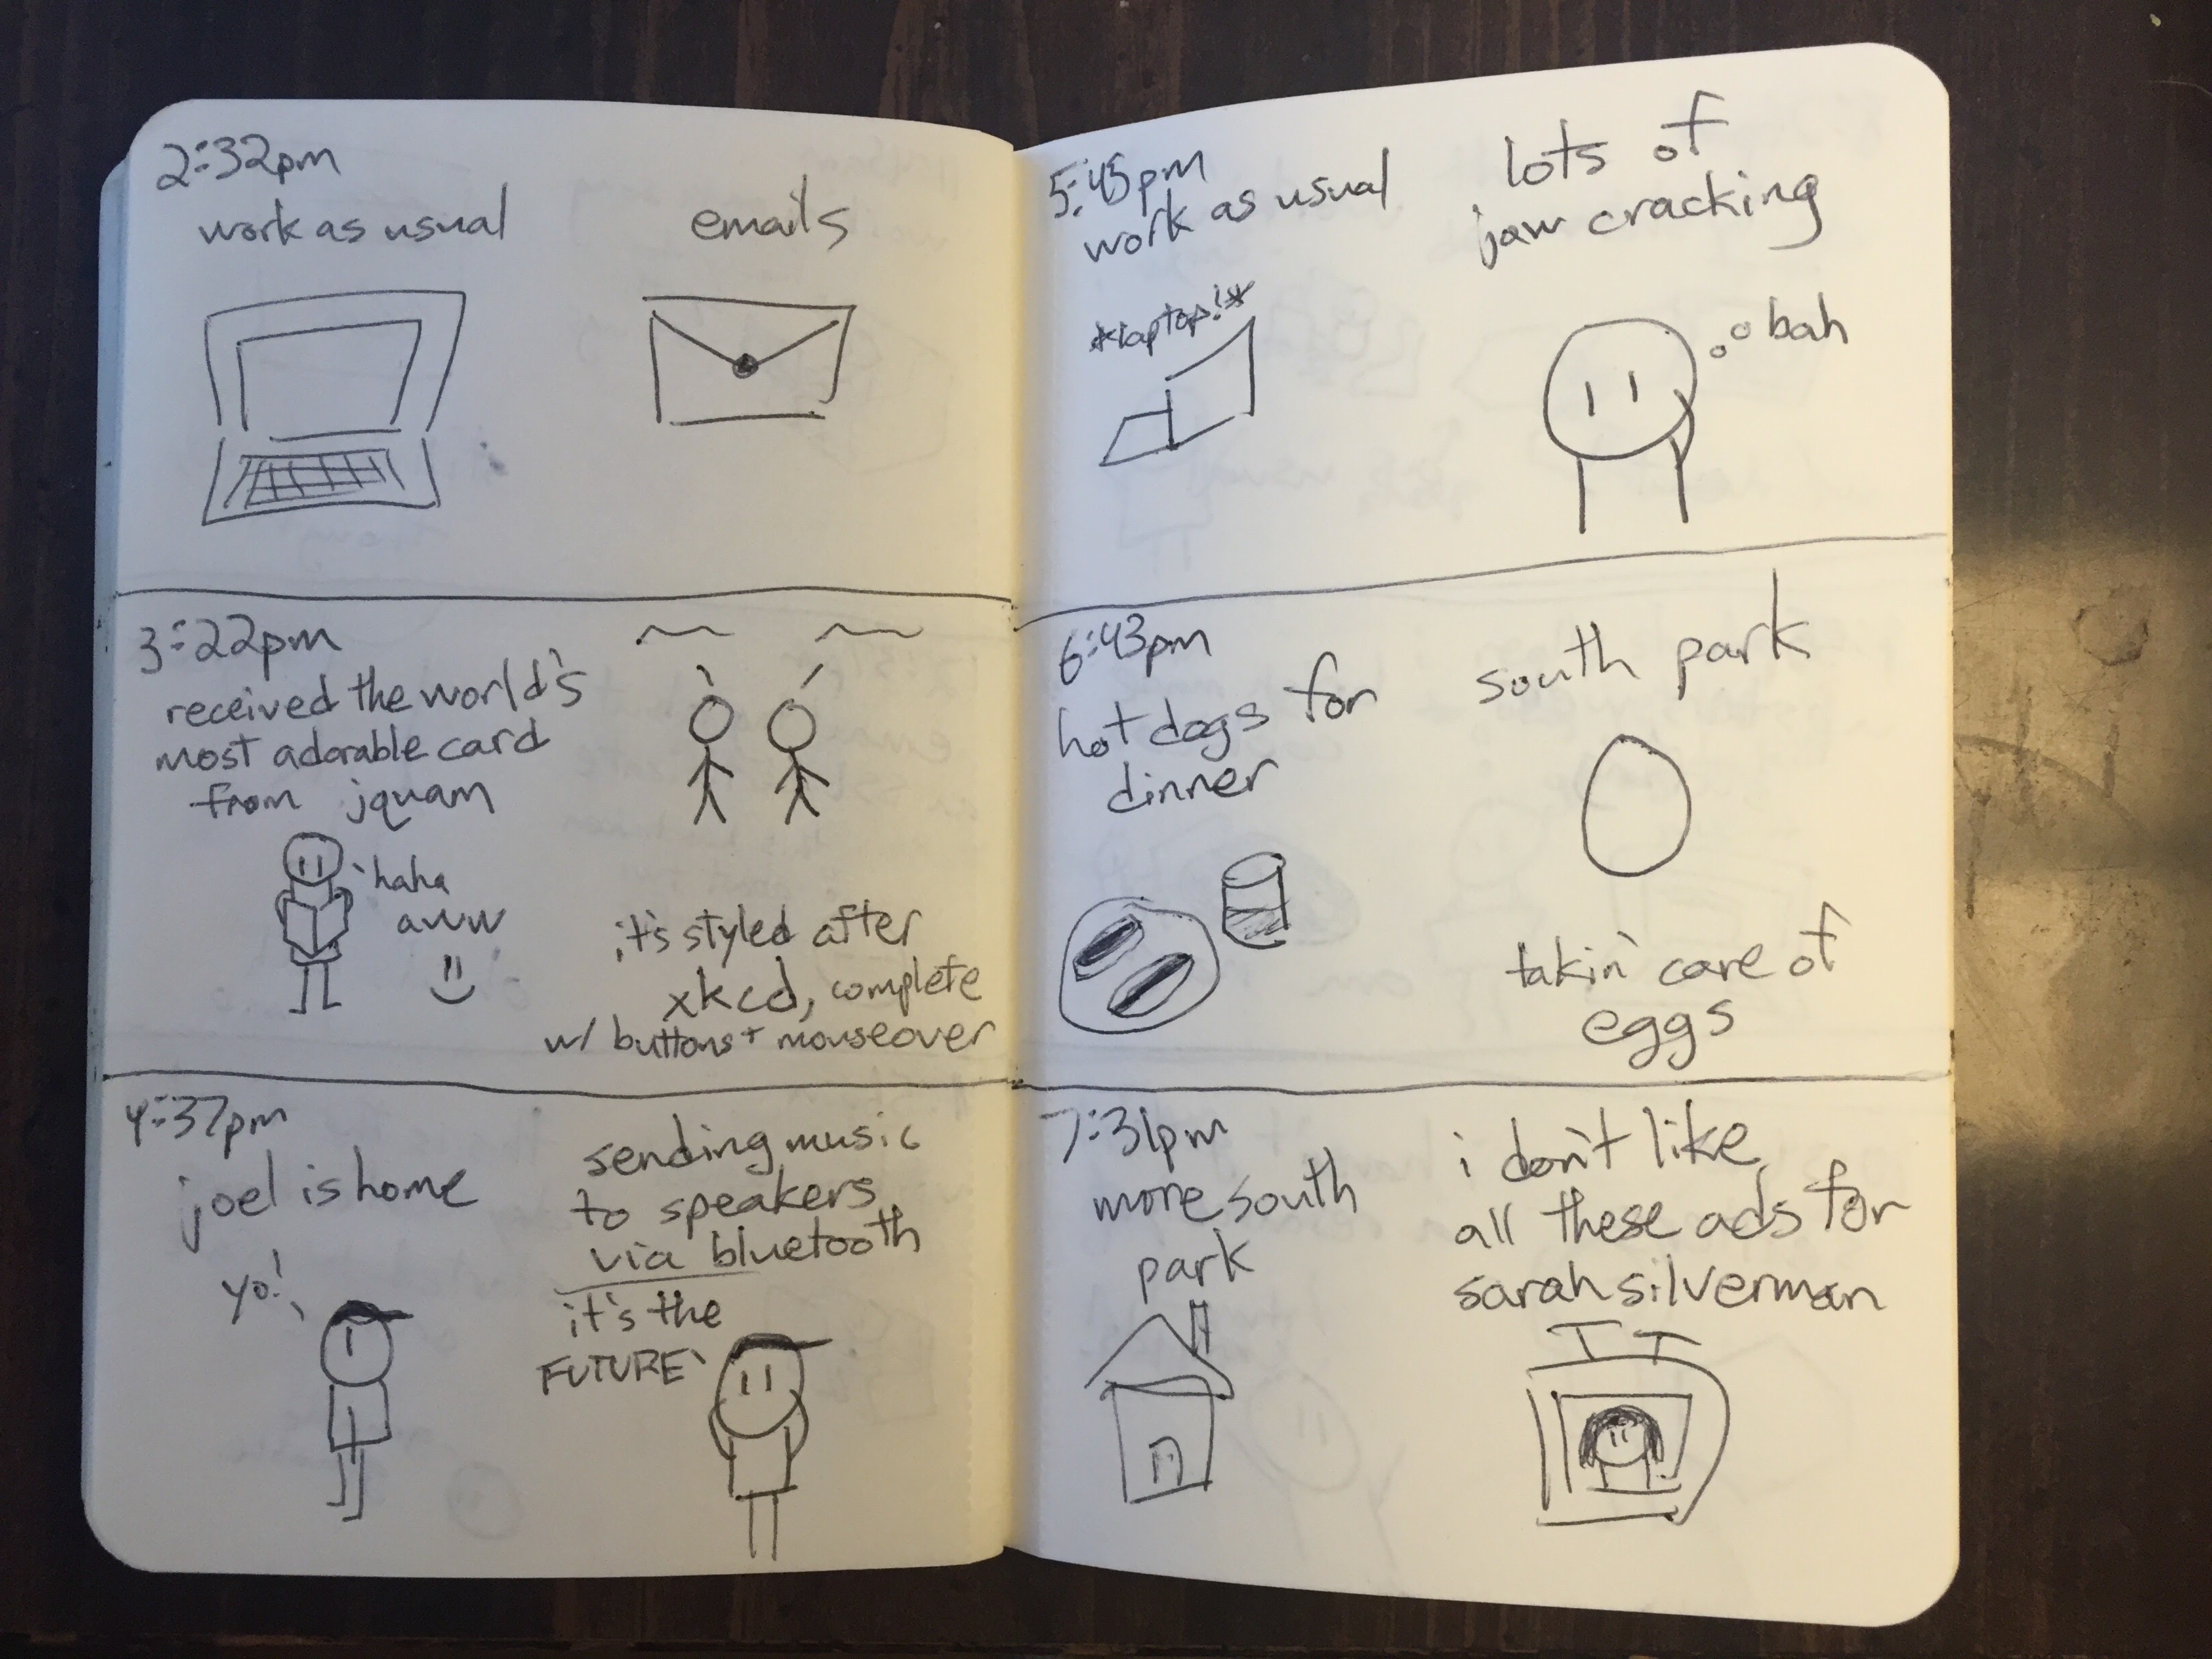 2:32pm
work as usual
emails
3:22pm
received the world's
most adorable card
from jquam
haha
aww
it's styled after
xkcd, complete
w/ buttons + mouseover
4:37pm
joel is home
yo!
sending music
to speakers
via bluetooth
it's the
FUTURE
5:45pm
work as usual
*laptop!*
lots of
jaw cracking
bah
6:43pm
hot dogs for
dinner
south park
takin' care of
eggs
7:31pm
more south
park
i don't like
all these ads for
sarah silverman